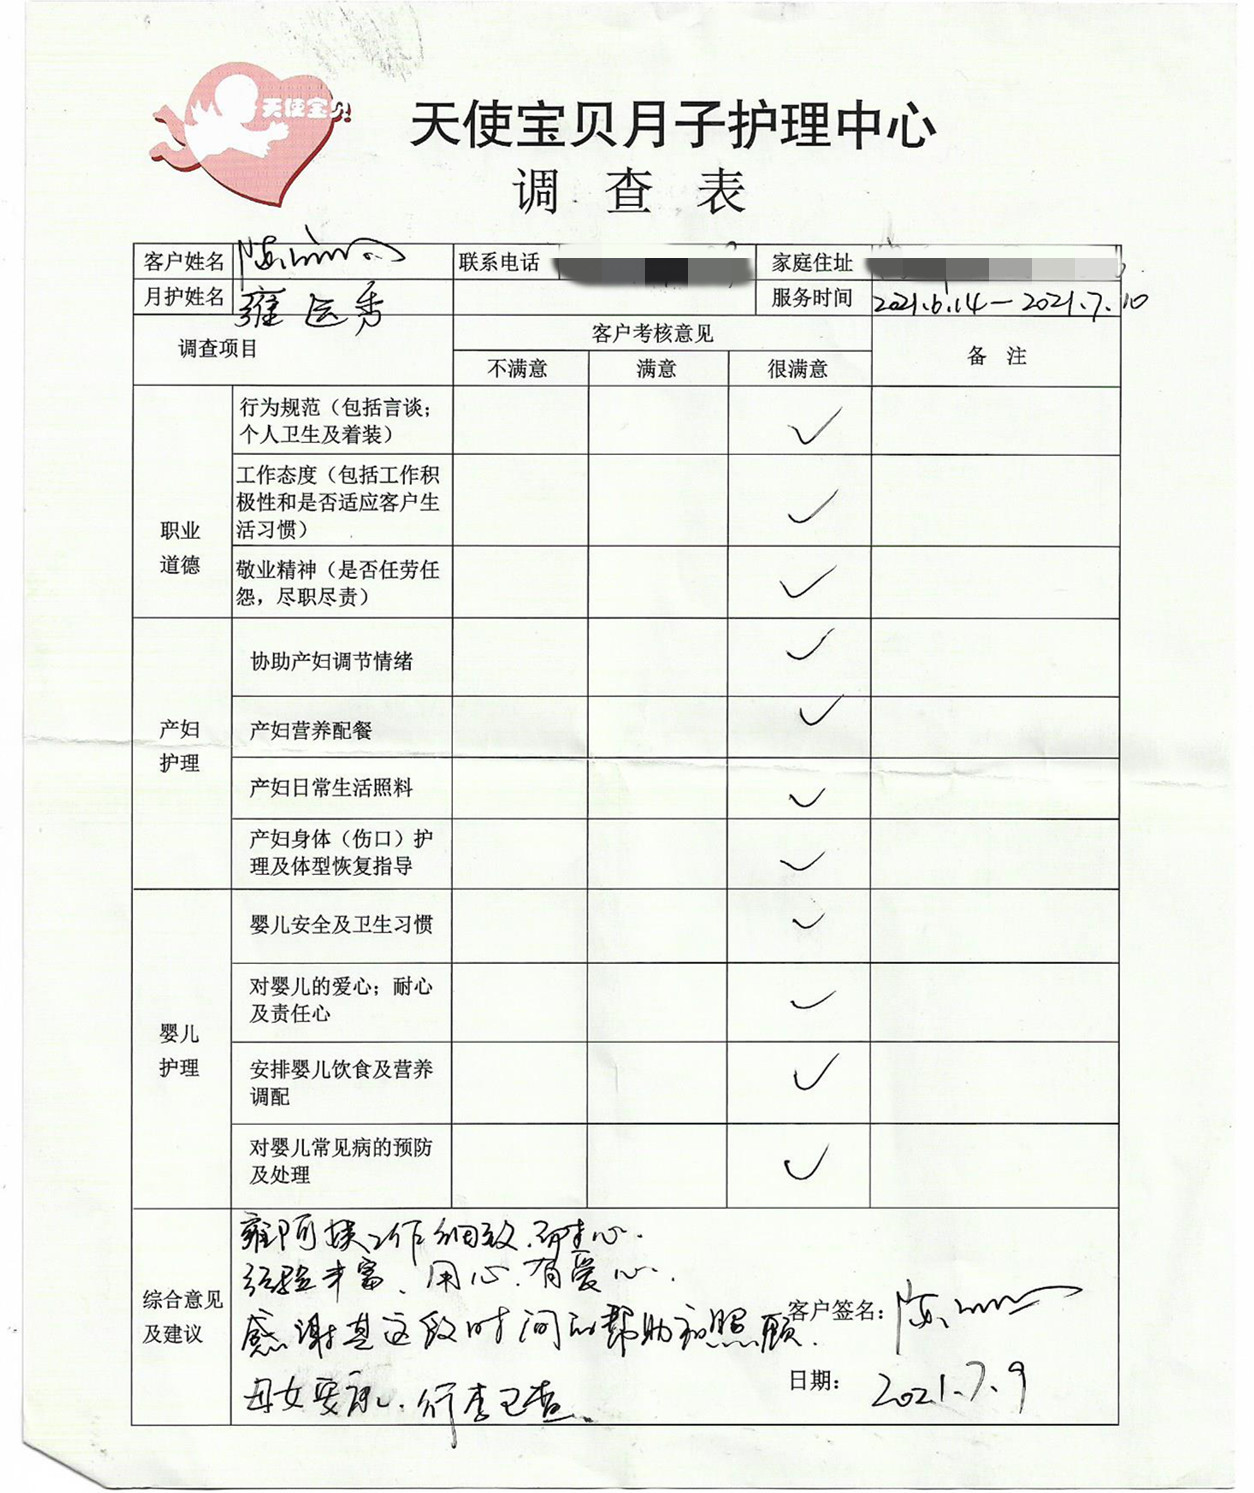 天使宝贝
天使宝贝月子护理中心
调查表
客户姓名 陈 联系电话 家庭住址
月护姓名 雍运秀 服务时间 2021.6.14—2021.7.10
调查项目 客户考核意见 备注
不满意 满意 很满意
职业
道德
行为规范（包括言谈；
个人卫生及着装）
✓
工作态度（包括工作积
极性和是否适应客户生
活习惯）
✓
敬业精神（是否任劳任
怨，尽职尽责）
✓
产妇
护理
协助产妇调节情绪 ✓
产妇营养配餐 ✓
产妇日常生活照料 ✓
产妇身体（伤口）护
理及体型恢复指导
✓
婴儿
护理
婴儿安全及卫生习惯 ✓
对婴儿的爱心；耐心
及责任心
✓
安排婴儿饮食及营养
调配
✓
对婴儿常见病的预防
及处理
✓
综合意见
及建议
雍阿姨工作细致、耐心.
经验丰富、用心、有爱心.
感谢其这段时间的帮助和照顾.
母女安康、行李已查.
客户签名：陈
日期：2021.7.9